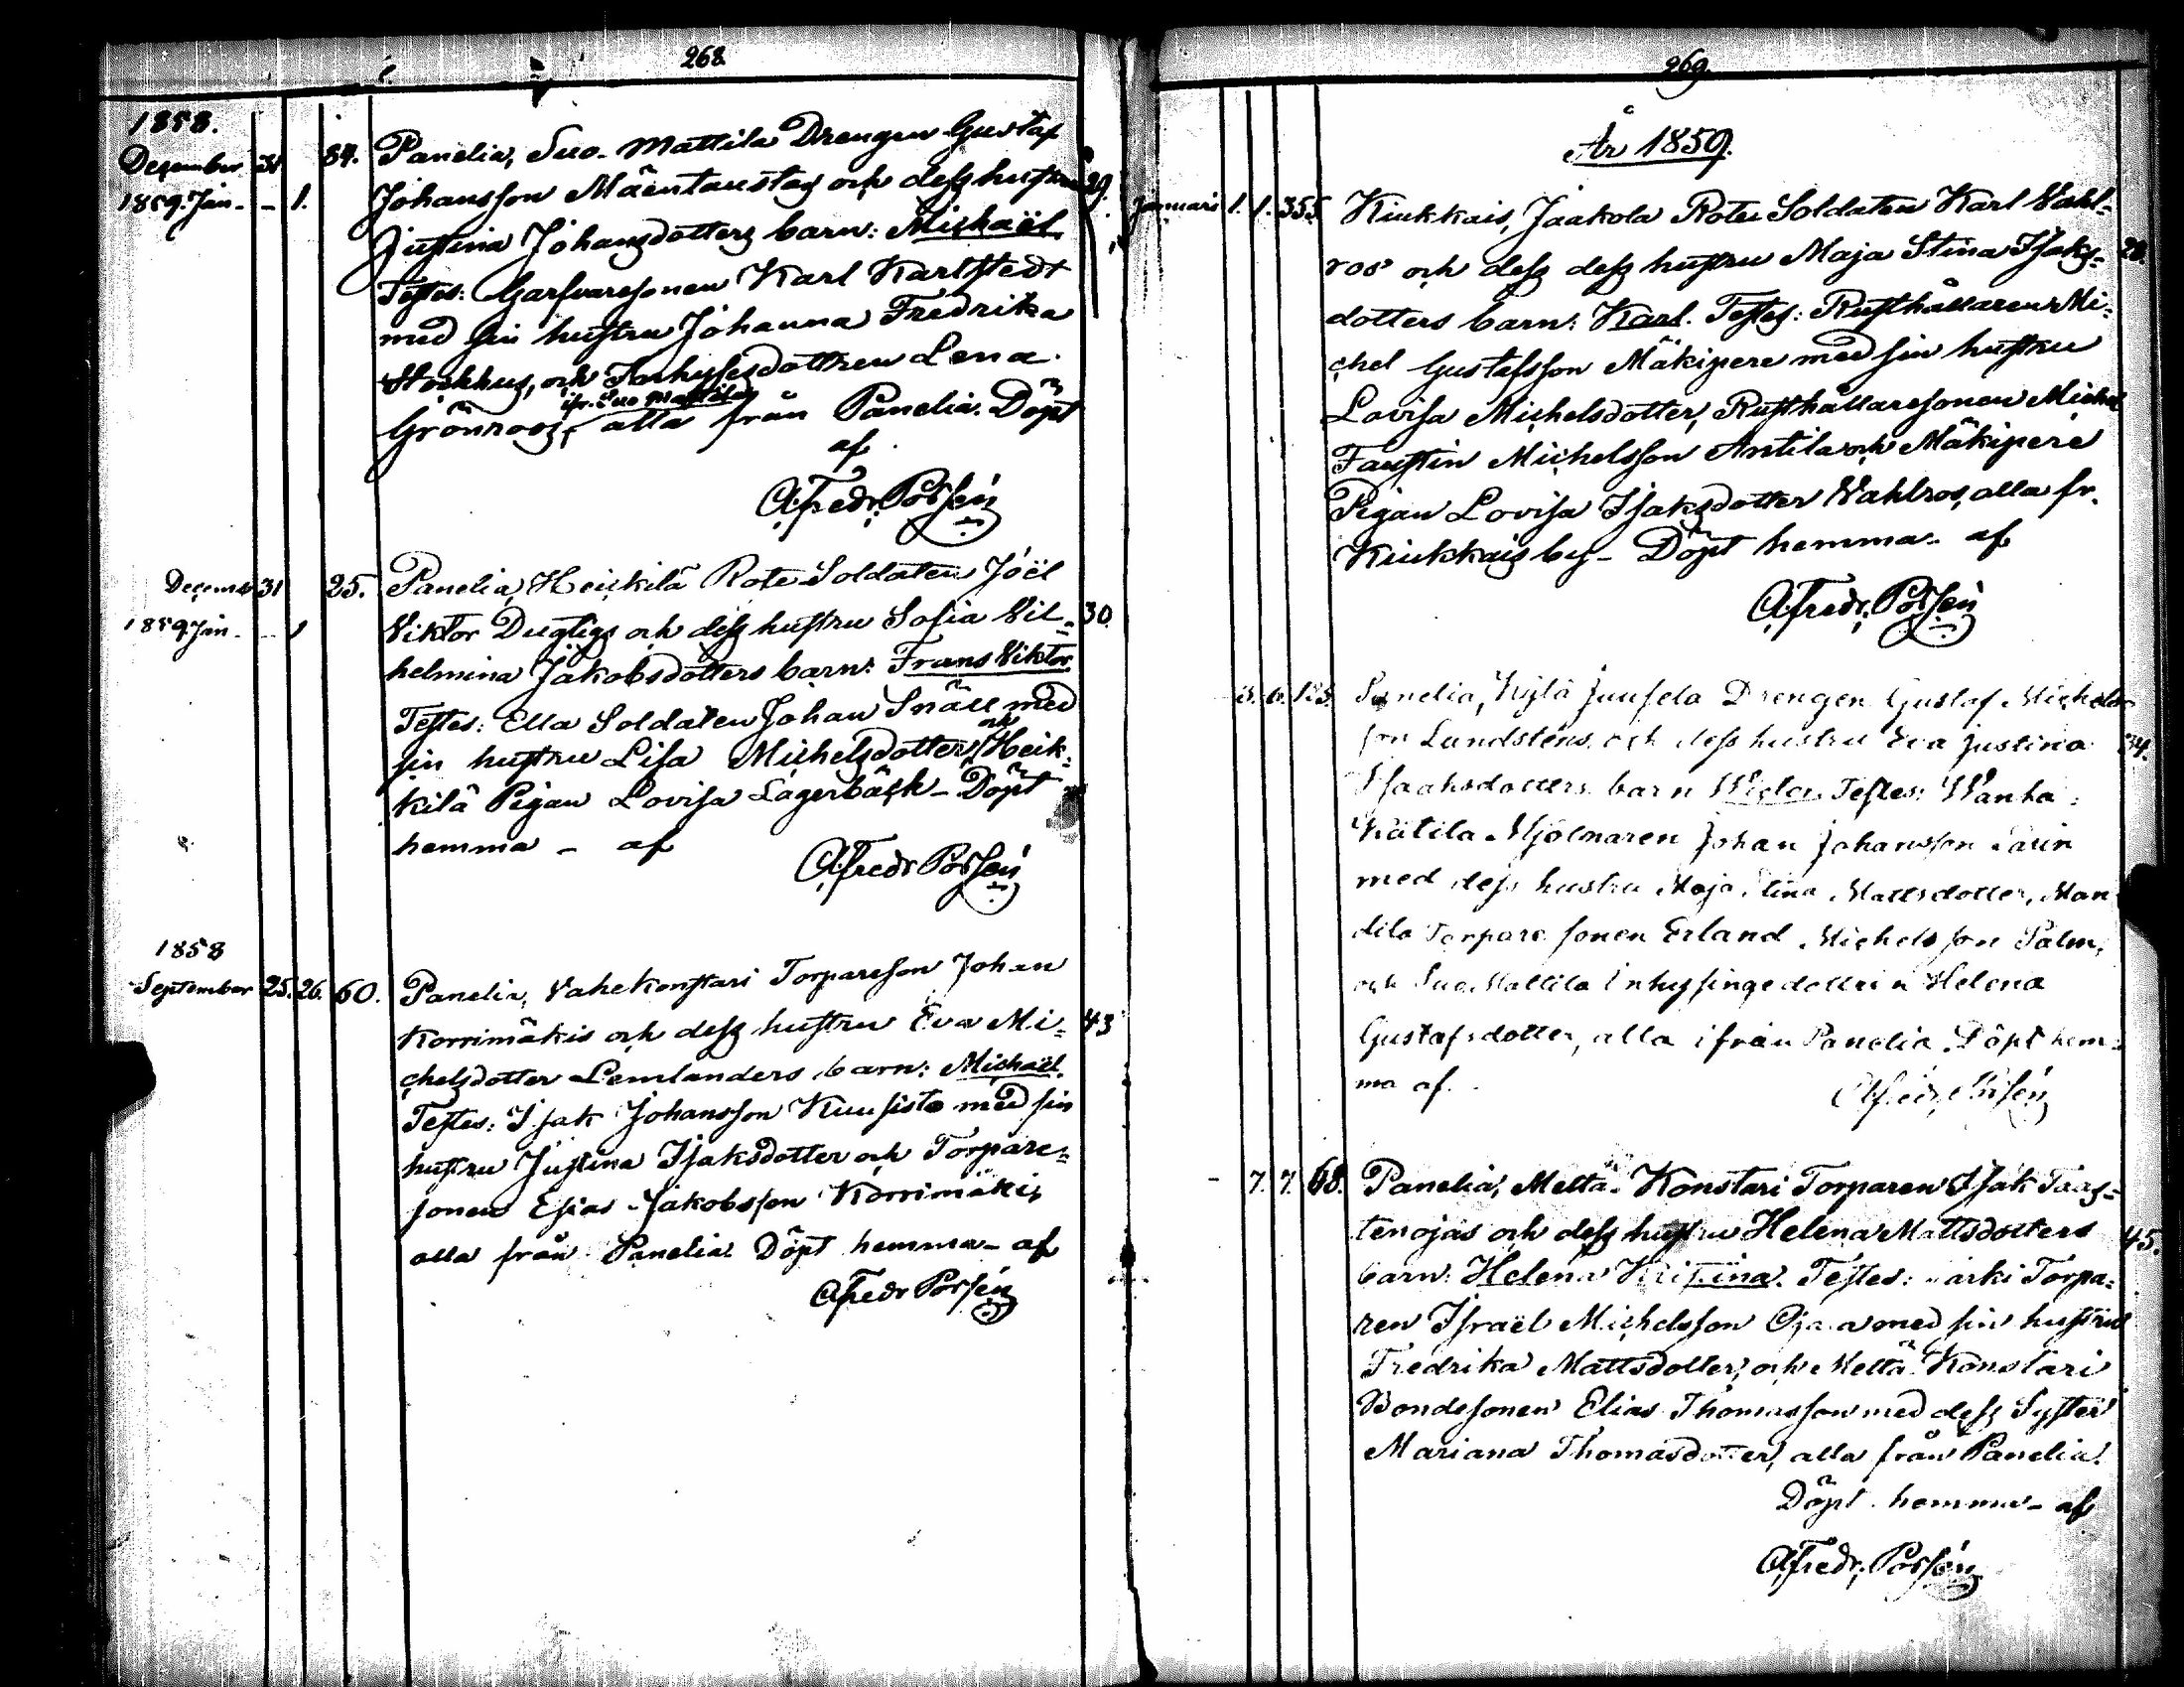 268.
1858.
December 31 84. Panelia, Suo-Mattila Drengen Gustaf
1859. Jan. - 1. Johansson Mäentaustas och dess hustru 29.
Justina Johansdotters barn: Michaël.
Testes: Garfvaresonen Karl Karlstedt
med sin hustru Johanna Fredrika
Stockhus, och Inhysesdottren Lena
ifr. Suo Mattila
Grönroos, alla från Panelia. Döpt
af
Afredr. Porsén
Decemb 31 25. Panelia, Heikkilä Rote Soldaten Joël
1859 Jan. - 1 Viktor Dugligs och dess hustru Sofia Vil- 30.
helmina Jakobsdotters barn: Frans Viktor.
Testes: Ella Soldaten Johan Snäll med
sin hustru Lisa Michelsdotter, och Heik-
kilä Pigan Lovisa Lagerbäck - Döpt
hemma - af
Afredr Porsén
1858
September 25. 26. 60. Panelia, Vahekonstari Torpareson Johan
Korrimäkis och dess hustru Eva Mi- 43
chelsdotter Lemlanders barn: Michaël.
Testes: Isak Johansson Kuusisto med sin
hustru Justina Isaksdotter och Torpare-
sonen Esias Jakobsson Korrimäki,
alla från Panelia. Döpt hemma - af
Afredr Porsén
269.
År 1859.
Januari 1. 1. 355. Kiukkais, Jaakola Rote Soldaten Karl Vahl-
ros' och dess dess hustru Maja Stina Isaks- 28.
dotters barn: Karl. Testes: Rusthållaren Mi-
chel Gustafsson Mäkipere med sin hustru
Lovisa Michelsdotter, Rusthållaresonen Michel
Faustin Michelsson Antila och Mäkipere
Pigan Lovisa Isaksdotter Vahlros, alla fr.
Kiukkais by - Döpt hemma - af
Afredr. Porsén
3. 6. 125. Panelia, Kylä Juusela Drengen Gustaf Michels-
son Lundstens och dess hustru Eva Justina 34.
Isaaksdotters barn Testes: Wanha-
Kätilä Mjölnaren Johan Johansson
med dess hustru Maja Stina Mattsdotter, Man-
dila Torpare sonen Erland Michelsson Palm,
och Suo Mattila Inhysinge dottren Helena
Gustafsdotter, alla ifrån Panelia. Döpt hem-
ma af.
Afredr. Porsén
- 7. 7. 68. Panelia, Mettä-Konstari Torparen Isak Taas-
tenojas och dess hustru Helena Mattsdotters 45.
barn: Helena Kristina. Testes: Torpa-
ren Israël Michelsson Ojala med sin hustru
Fredrika Mattsdotter, och Mettä Konstari
Bondesonen Elias Thomasson med dess Syster
Mariana Thomasdotter, alla från Panelia.
Döpt hemma - af
Afredr. Porsén